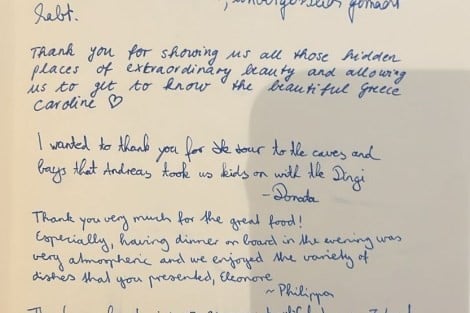 unvergesslich gemacht
habt.
Thank you for showing us all those hidden
places of extraordinary beauty and allowing
us to get to know the beautiful Greece
Caroline ♡
I wanted to thank you for the tour to the caves and
bays that Andreas took us kids on with the Dingi
- Donata
Thank you very much for the great food!
Especially, having dinner on board in the evening was
very atmospheric and we enjoyed the variety of
dishes that you presented, Eleonore
~ Philippa